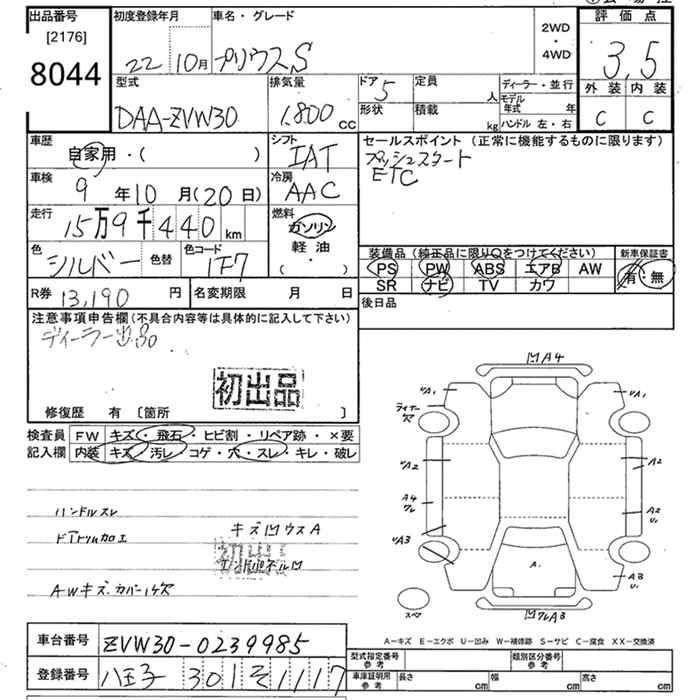 出品番号
[2176]
8044
初度登録年月
22 10月
車名・グレード
プリウス S
2WD
・
4WD
評価点
3.5
外装 内装
C C
型式
DAA-ZVW30
排気量
1,800 cc
ドア 5
形状
定員 人
積載 kg
ディーラー・並行
モデル年式 年
ハンドル 左・右
車歴
自家用・( )
シフト
IAT
車検
9年10月(20日)
冷房
AAC
走行
15万9千440km
燃料
ガソリン
軽油
( ・ )
色
シルバー
色替
色コード
1F7
セールスポイント (正常に機能するものに限ります)
プッシュスタート
ETC
装備品(純正品に限り○をつけてください)
PS PW ABS エアB AW
SR ナビ TV カワ
新車保証書
有・無
R券 13,190円
名変期限 月 日
後日品
注意事項申告欄(不具合内容等は具体的に記入して下さい)
初出品
修復歴 有 [箇所 ]
検査員記入欄
FW キズ・飛石・ヒビ割・リペア跡・×要
内装 キズ・汚レ・コゲ・穴・スレ・キレ・破レ
ハンドルスレ
ドアトリム加工
キズ凹ウスA
初出品
AWキズ.カバーハケ欠
凹A4
A1
A1
A2
A2
A4
A2
A3
A.
A3
凹クレA3
スペア
A-キズ E-エクボ U-凹み W-補修跡 S-サビ C-腐食 XX-交換済
車台番号 ZVW30-0239985
登録番号 八王子 301 そ 1117
型式指定番号
参考
類別区分番号
参考
車庫証明用
参考
長さ cm 幅 cm 高さ cm